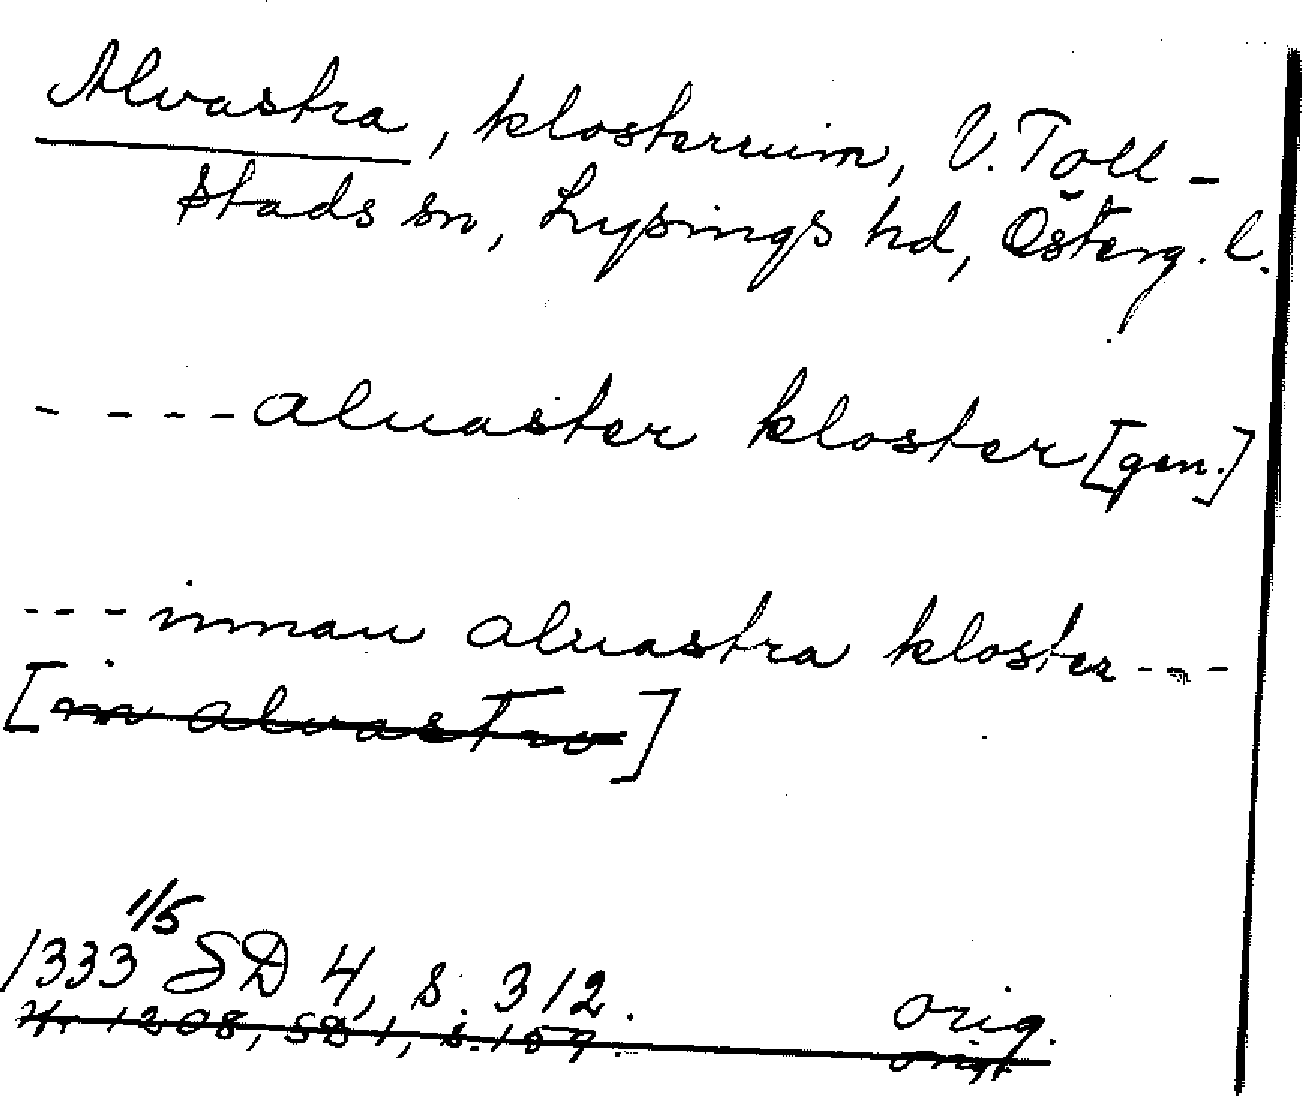 Alvastra, klosterruin, V. Toll-
stads sn, Lysings hd, Österg. l.
- - - - aluaster kloster [gen.]
- - - innan aluastra kloster - - -
[in alvastro]
1333 1/5 SD 4, s. 312. orig.
1208, SD 1, s. 159. orig.